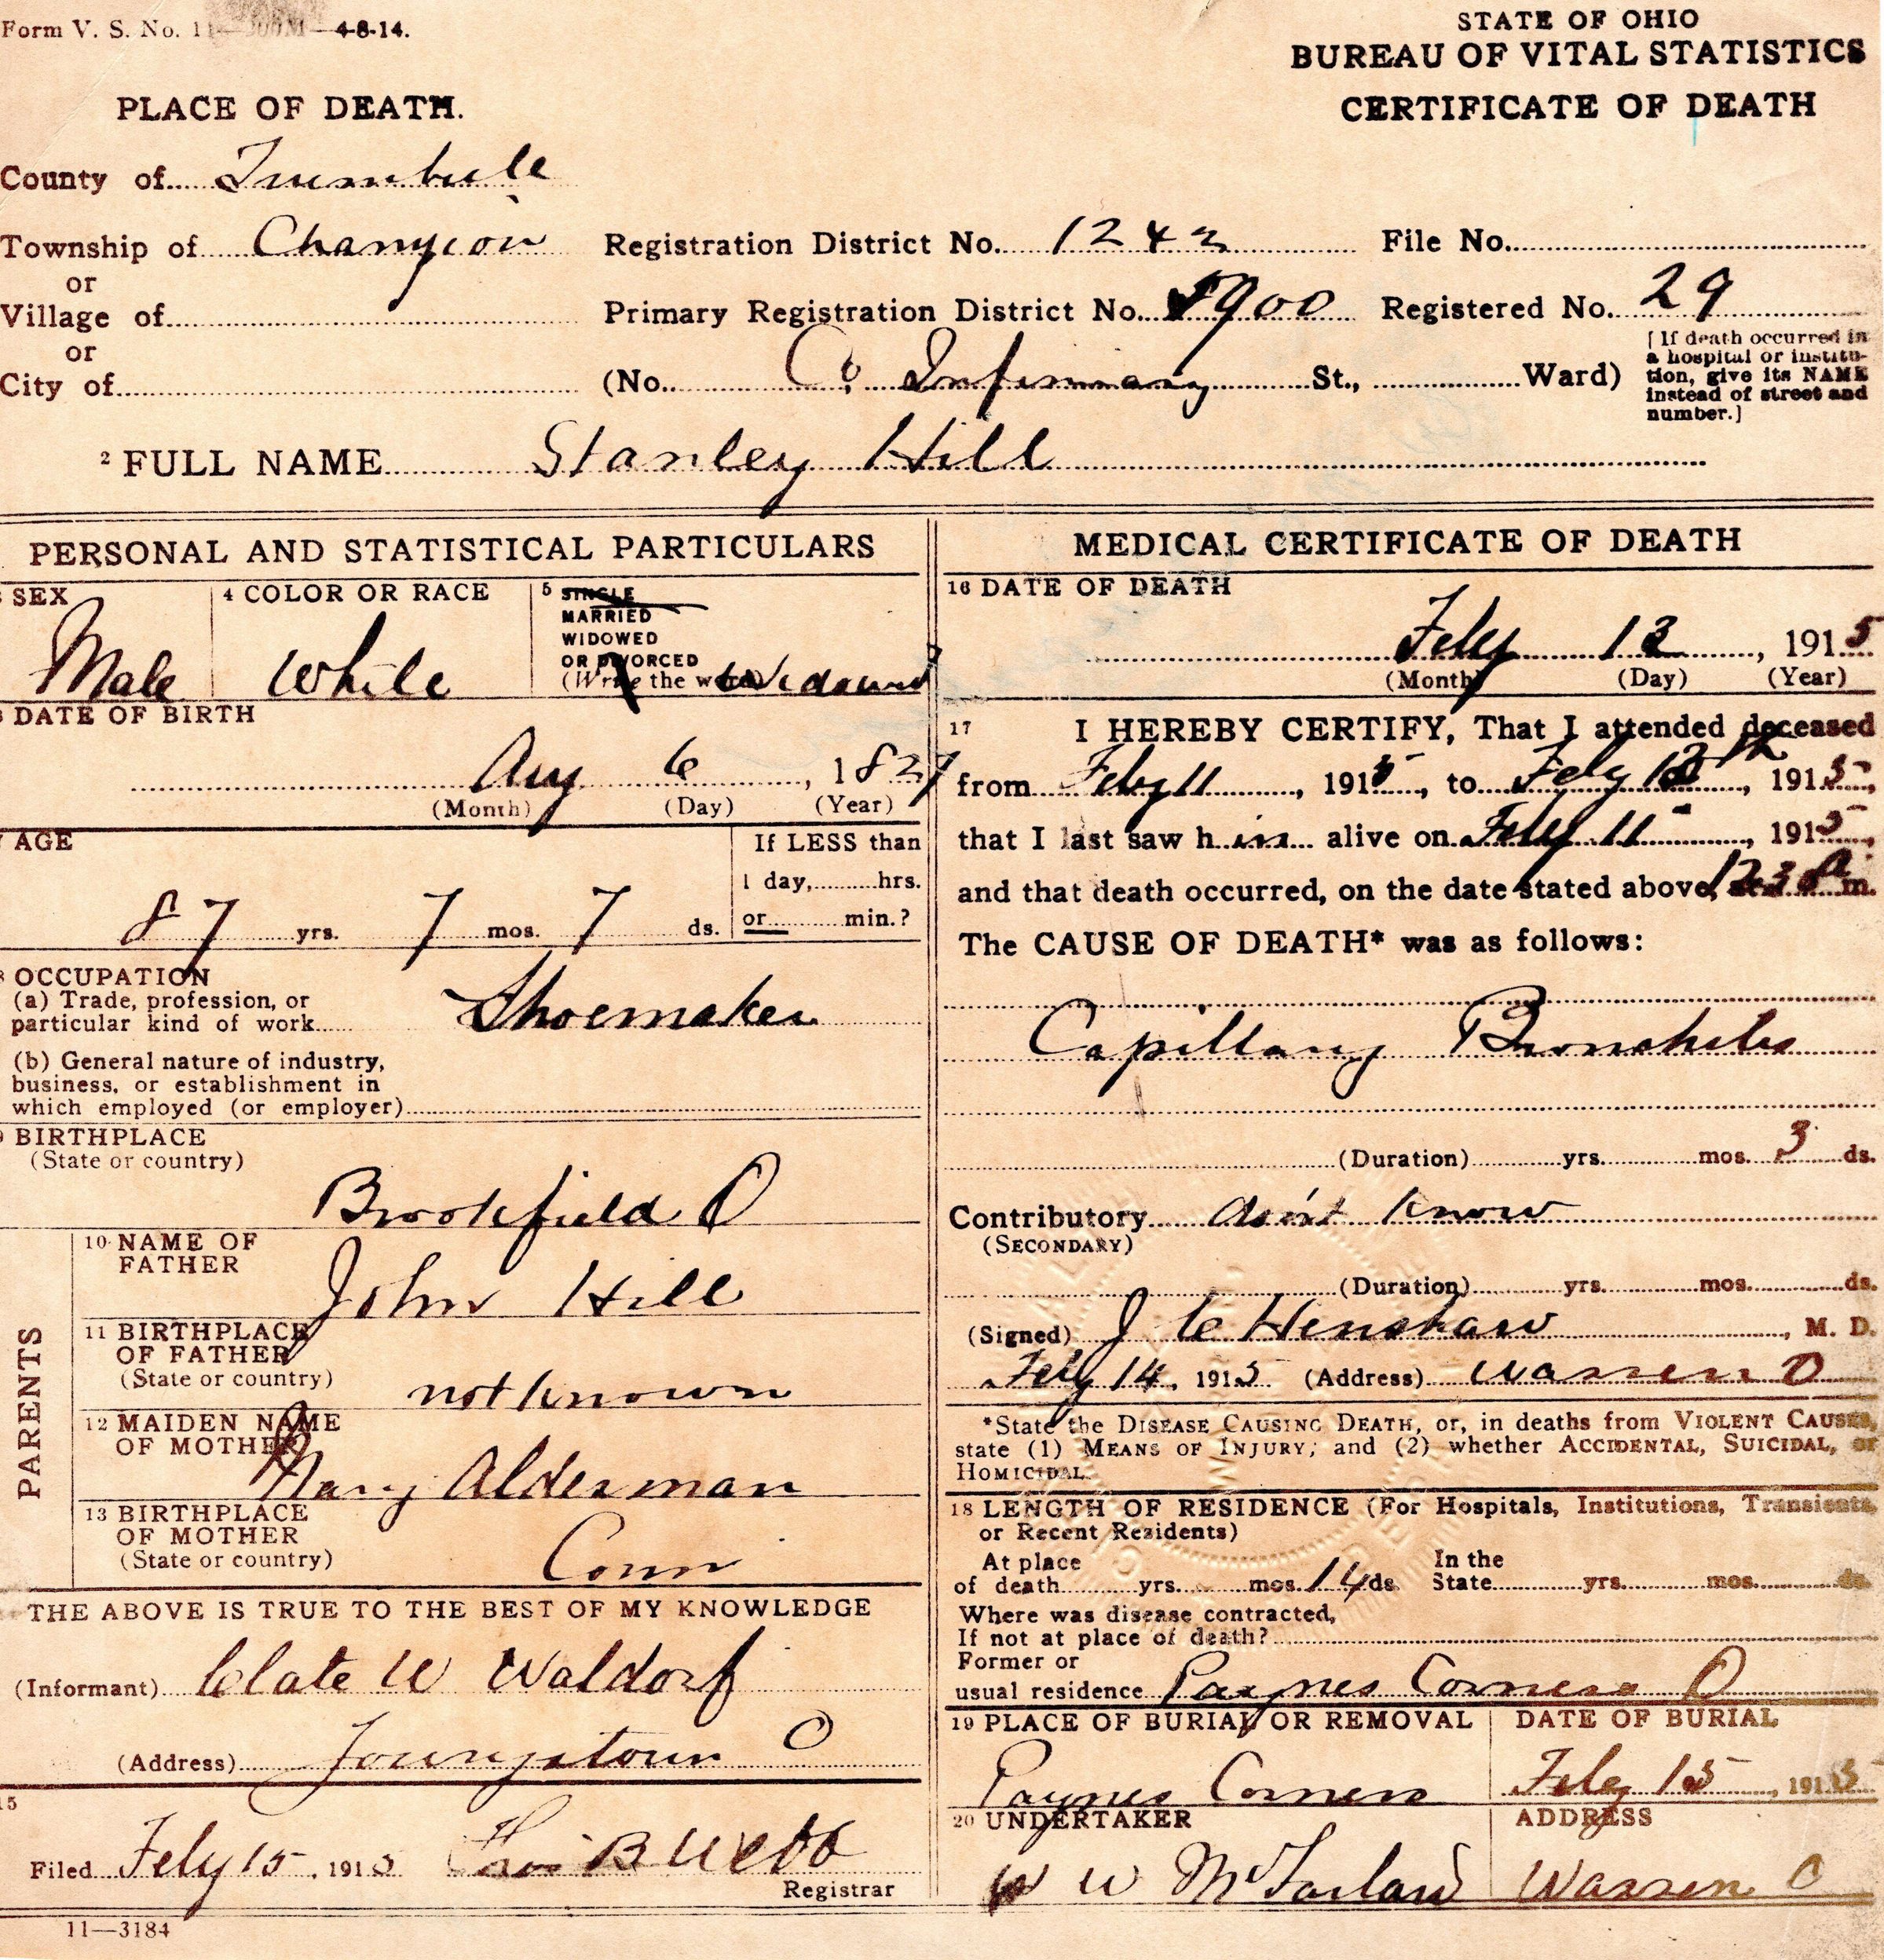 Form V. S. No. 11—300M—4-8-14.
STATE OF OHIO
BUREAU OF VITAL STATISTICS
CERTIFICATE OF DEATH
PLACE OF DEATH.
County of Trumbull
Township of Champion Registration District No. 1242 File No.
or
Village of Primary Registration District No. 5900 Registered No. 29
or
City of (No. Co. Infirmary St., Ward)
[If death occurred in
a hospital or institu-
tion, give its NAME
instead of street and
number.]
2 FULL NAME Stanley Hill
PERSONAL AND STATISTICAL PARTICULARS
3 SEX
Male
4 COLOR OR RACE
White
5 SINGLE
MARRIED
WIDOWED
OR DIVORCED
(Write the word) Widowed
6 DATE OF BIRTH
Aug 6, 1827
(Month) (Day) (Year)
7 AGE
87 yrs. 7 mos. 7 ds.
If LESS than
1 day, hrs.
or min.?
8 OCCUPATION
(a) Trade, profession, or
particular kind of work Shoemaker
(b) General nature of industry,
business, or establishment in
which employed (or employer)
9 BIRTHPLACE
(State or country)
Brookfield O
PARENTS
10 NAME OF
FATHER
John Hill
11 BIRTHPLACE
OF FATHER
(State or country)
not known
12 MAIDEN NAME
OF MOTHER
Mary Alderman
13 BIRTHPLACE
OF MOTHER
(State or country)
Conn
THE ABOVE IS TRUE TO THE BEST OF MY KNOWLEDGE
(Informant) Clate W Waldorf
(Address) Youngstown O
15
Filed Feby 15, 1915 B Webb
Registrar
11—3184
MEDICAL CERTIFICATE OF DEATH
16 DATE OF DEATH
Feby 13, 1915
(Month) (Day) (Year)
17 I HEREBY CERTIFY, That I attended deceased
from Feby 11, 1915, to Feby 13th, 1915,
that I last saw him alive on Feby 11, 1915,
and that death occurred, on the date stated above, at 1230 a m.
The CAUSE OF DEATH* was as follows:
Capillary Bronchitis
(Duration) yrs. mos. 3 ds.
Contributory don't know
(SECONDARY)
(Duration) yrs. mos. ds.
(Signed) J C Henshaw, M. D.
Feby 14, 1915 (Address) Warren O
*State the DISEASE CAUSING DEATH, or, in deaths from VIOLENT CAUSES,
state (1) MEANS OF INJURY; and (2) whether ACCIDENTAL, SUICIDAL, or
HOMICIDAL.
18 LENGTH OF RESIDENCE (For Hospitals, Institutions, Transients,
or Recent Residents)
At place
of death yrs. mos. 14 ds.
In the
State yrs. mos. ds.
Where was disease contracted,
If not at place of death?
Former or
usual residence Paynes Corners O
19 PLACE OF BURIAL OR REMOVAL
Paynes Corners
DATE OF BURIAL
Feby 15, 1915
20 UNDERTAKER
W W McFarland
ADDRESS
Warren O